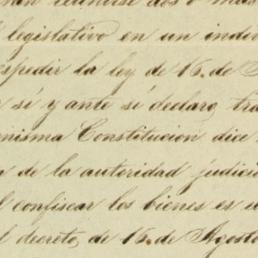 reunirse dos ó mas
legislativo en un indi
espedir la ley de 16. de
sí y ante sí declara, tra
misma Constitucion dice
de la autoridad judici
confiscar los bienes es u
decreto, de 16. de Agosto